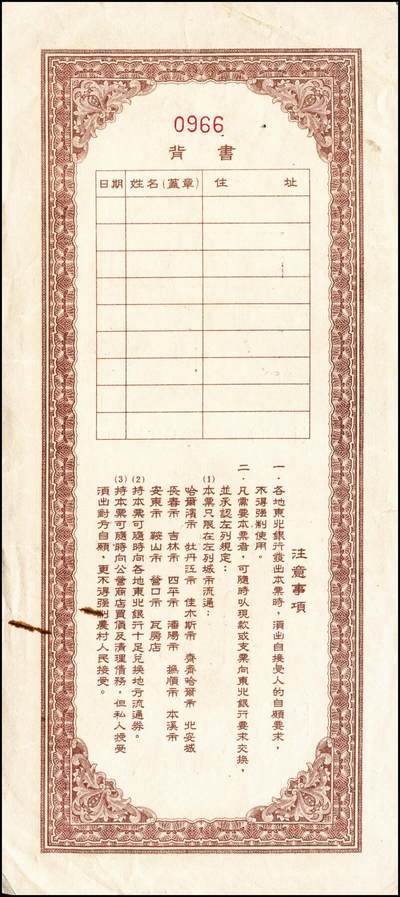 0966
背書
日期 姓名(蓋章) 住址
注意事項
一．各地東北銀行發出本票時，須出自接受人的自願要求，
不得强制使用。
二．凡需要本票者，可隨時以現款或支票向東北銀行要求交換，
並承認左列規定：
(1)本票只限在左列城市流通：
哈爾濱市 牡丹江市 佳木斯市 齊齊哈爾市 北安城
長春市 吉林市 四平市 瀋陽市 撫順市 本溪市
安東市 鞍山市 營口市 瓦房店
(2)持本票可隨時向各地東北銀行十足兌換地方流通券。
(3)持本票可隨時向公營商店買貨及清理債務，但私人授受
須出對方自願，更不得强制農村人民接受。